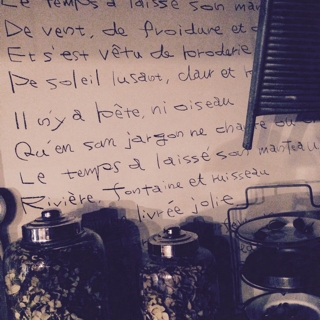 Le temps a laissé son man
De vent, de froidure et d
Et s'est vêtu de broderie
De soleil lusant, clair et
Il n'y a bête, ni oiseau
Qu'en son jargon ne chante ou
Le temps a laissé son manteau
Rivière, fontaine et ruisseau
livrée jolie